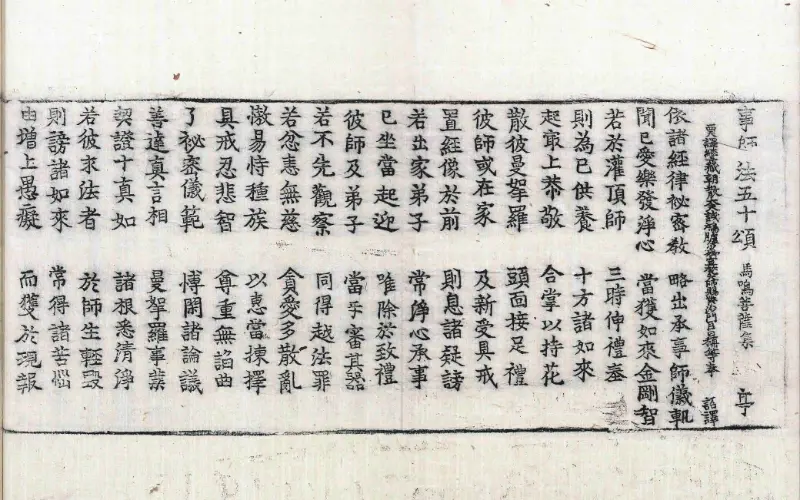 事師法五十頌 馬鳴菩薩集 亭
譯經三藏朝散大夫試鴻臚少卿宣梵大師賜紫沙門臣日稱等奉 詔譯
依諸經律祕密教 略出承事師儀軌
聞已愛樂發淨心 當獲如來金剛智
若於灌頂師 三時伸禮奉
則為已供養 十方諸如來
起最上恭敬 合掌以持花
散彼曼拏羅 頭面接足禮
彼師或在家 及新受具戒
置經像於前 則息諸疑謗
若出家弟子 常淨心承事
已坐當起迎 唯除於致禮
彼師及弟子 當互審其器
若不先觀察 同得越法罪
若忿恚無慈 貪愛多散亂
憿易恃種族 以慧當揀擇
具戒忍悲智 尊重無諂曲
了祕密儀範 博閑諸論議
善達真言相 曼拏羅事業
契證十真如 諸根悉清淨
若彼求法者 於師生輕毀
則謗諸如來 常得諸苦惱
由增上愚癡 而獲於現報